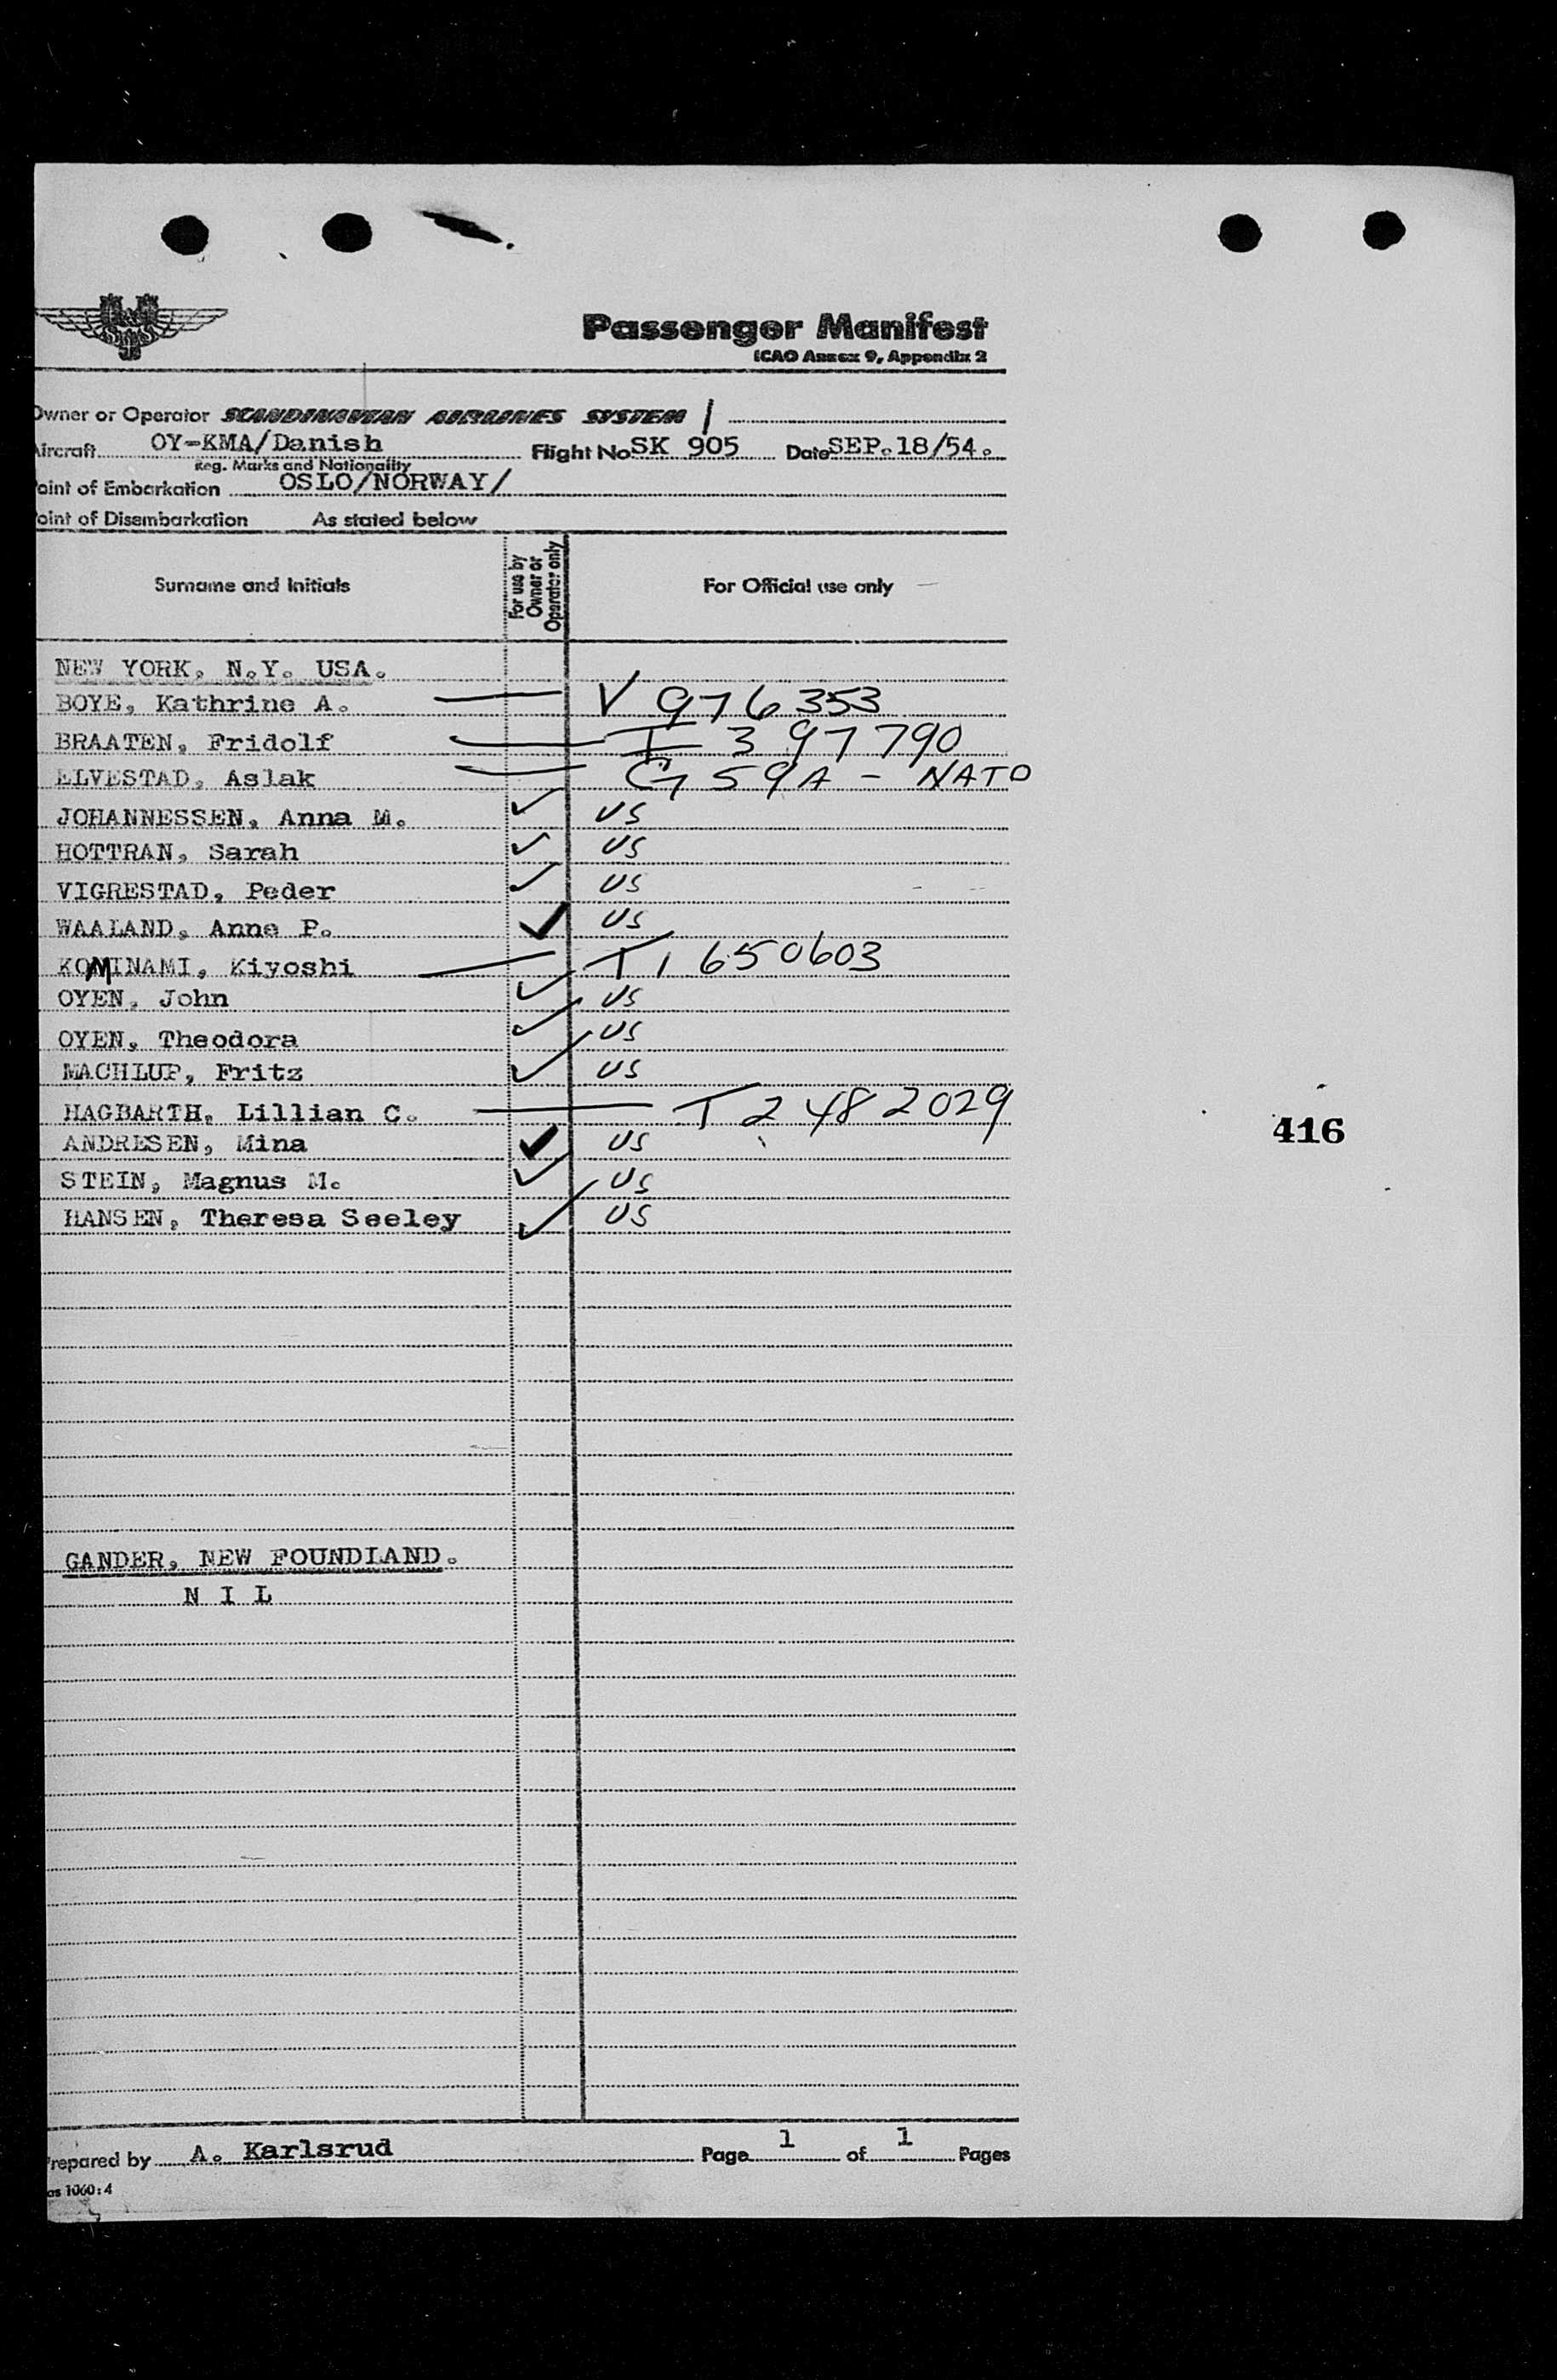 Passenger Manifest
ICAO Annex 9, Appendix 2
Owner or Operator SCANDINAVIAN AIRLINES SYSTEM /
Aircraft OY-KMA/Danish Flight No SK 905 Date SEP.18/54.
Reg. Marks and Nationality
oint of Embarkation OSLO/NORWAY/
oint of Disembarkation As stated below
Surname and Initials For use by Owner or Operator only For Official use only
NEW YORK, N.Y. USA.
BOYE, Kathrine A. V 976353
BRAATEN, Fridolf I 397790
ELVESTAD, Aslak G 59A - NATO
JOHANNESSEN, Anna M. ✓ US
HOTTRAN, Sarah ✓ US
VIGRESTAD, Peder ✓ US
WAALAND, Anne P. ✓ US
KOMINAMI, Kiyoshi T1 650603
OYEN, John ✓ US
OYEN, Theodora ✓ US
MACHLUP, Fritz ✓ US
HAGBARTH, Lillian C. T2 482029
416
ANDRESEN, Mina ✓ US
STEIN, Magnus M. ✓ US
HANSEN, Theresa Seeley ✓ US
GANDER, NEW FOUNDLAND.
N I L
repared by A. Karlsrud Page 1 of 1 Pages
as 1060:4